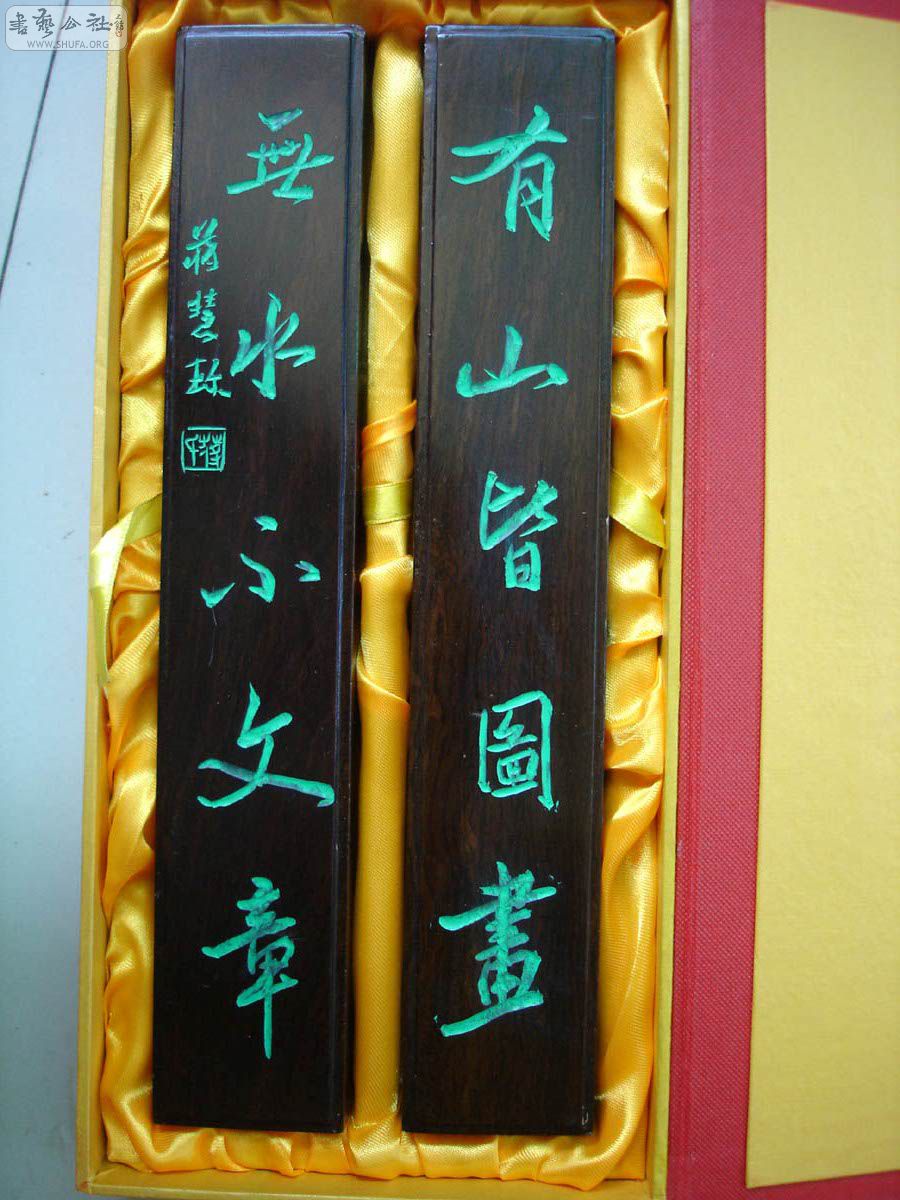 有山皆圖畫
無水不文章
蔣慧
書藝公社
WWW.SHUFA.ORG